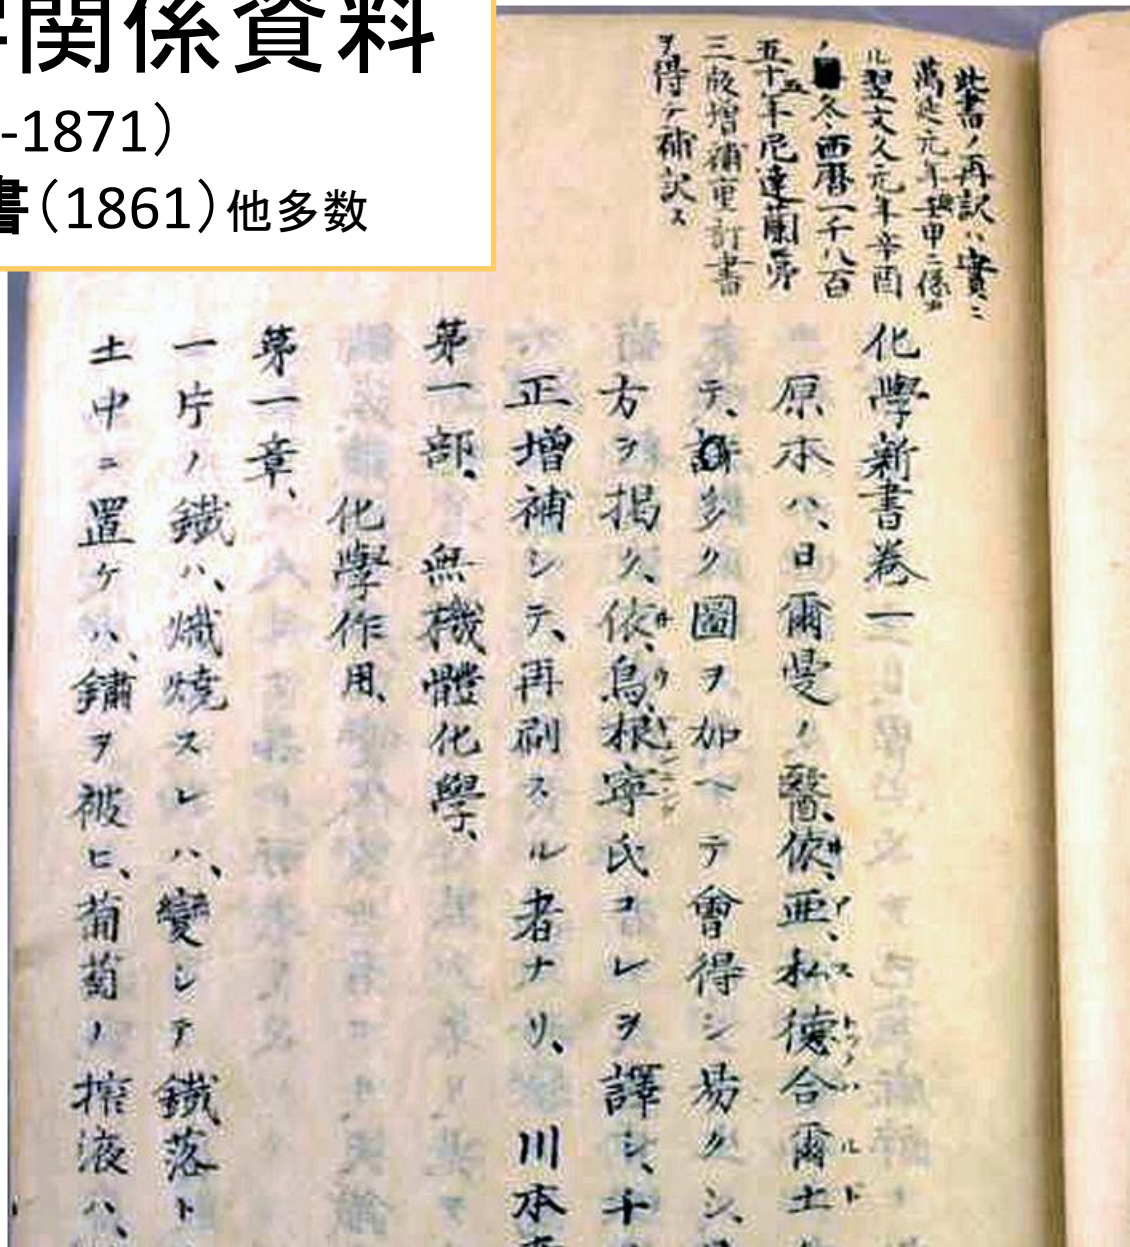 学関係資料
-1871）
書（1861）他多数
此書ノ再訳ハ實ニ
萬延元年庚申ニ係ル
ル翌文久元年辛酉
ノ冬西暦一千八百
五十五年尼達蘭第
三版増補重訂書
ヲ得テ補訳ス
化學新書巻一
原本ハ、日爾曼ノ醫、依亜、私徳合爾土
テ、許多ク圖ヲ加ヘテ會得シ易クシ、
方ヲ掲ク、依、烏、根寧氏コレヲ譯シ、千
正増補シテ、再刷スル者ナリ、 川本
第一部、 無機體化學、
化學作用、
第一章、
一片ノ鐵ハ、熾焼スレハ、變シテ鐵落ト
土中ニ置ケハ、鏽ヲ被ヒ、葡萄ノ搾液ハ、